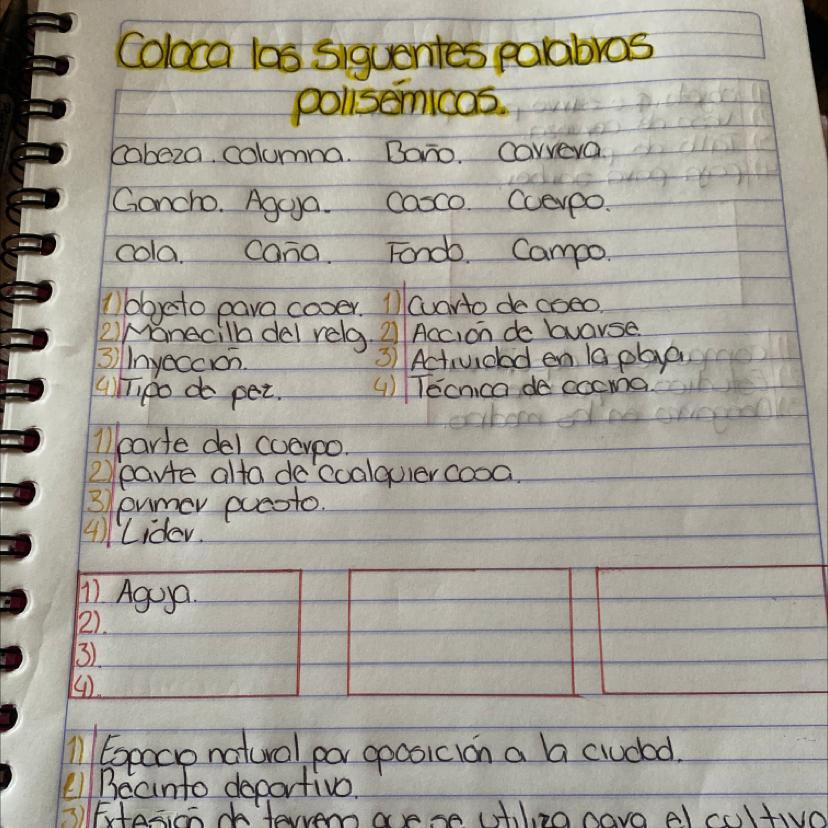 Coloca las siguentes palabras
polisémicas.
cabeza. columna. Baño. carrera.
Gancho. Aguja. casco. Cuerpo.
cola. Caña. Fondo. Campo.
1) objeto para coser. 1) Cuarto de aseo.
2) Manecilla del reloj. 2) Acción de lavarse.
3) Inyección. 3) Actividad en la playa.
4) Tipo de pez. 4) Técnica de cocina.
1) parte del cuerpo.
2) parte alta de cualquier cosa.
3) primer puesto.
4) Líder.
1) Aguja.
2).
3)
4).
1) Espacio natural por oposición a la ciudad.
2) Recinto deportivo.
3) Extesión de terreno que se utiliza para el cultivo